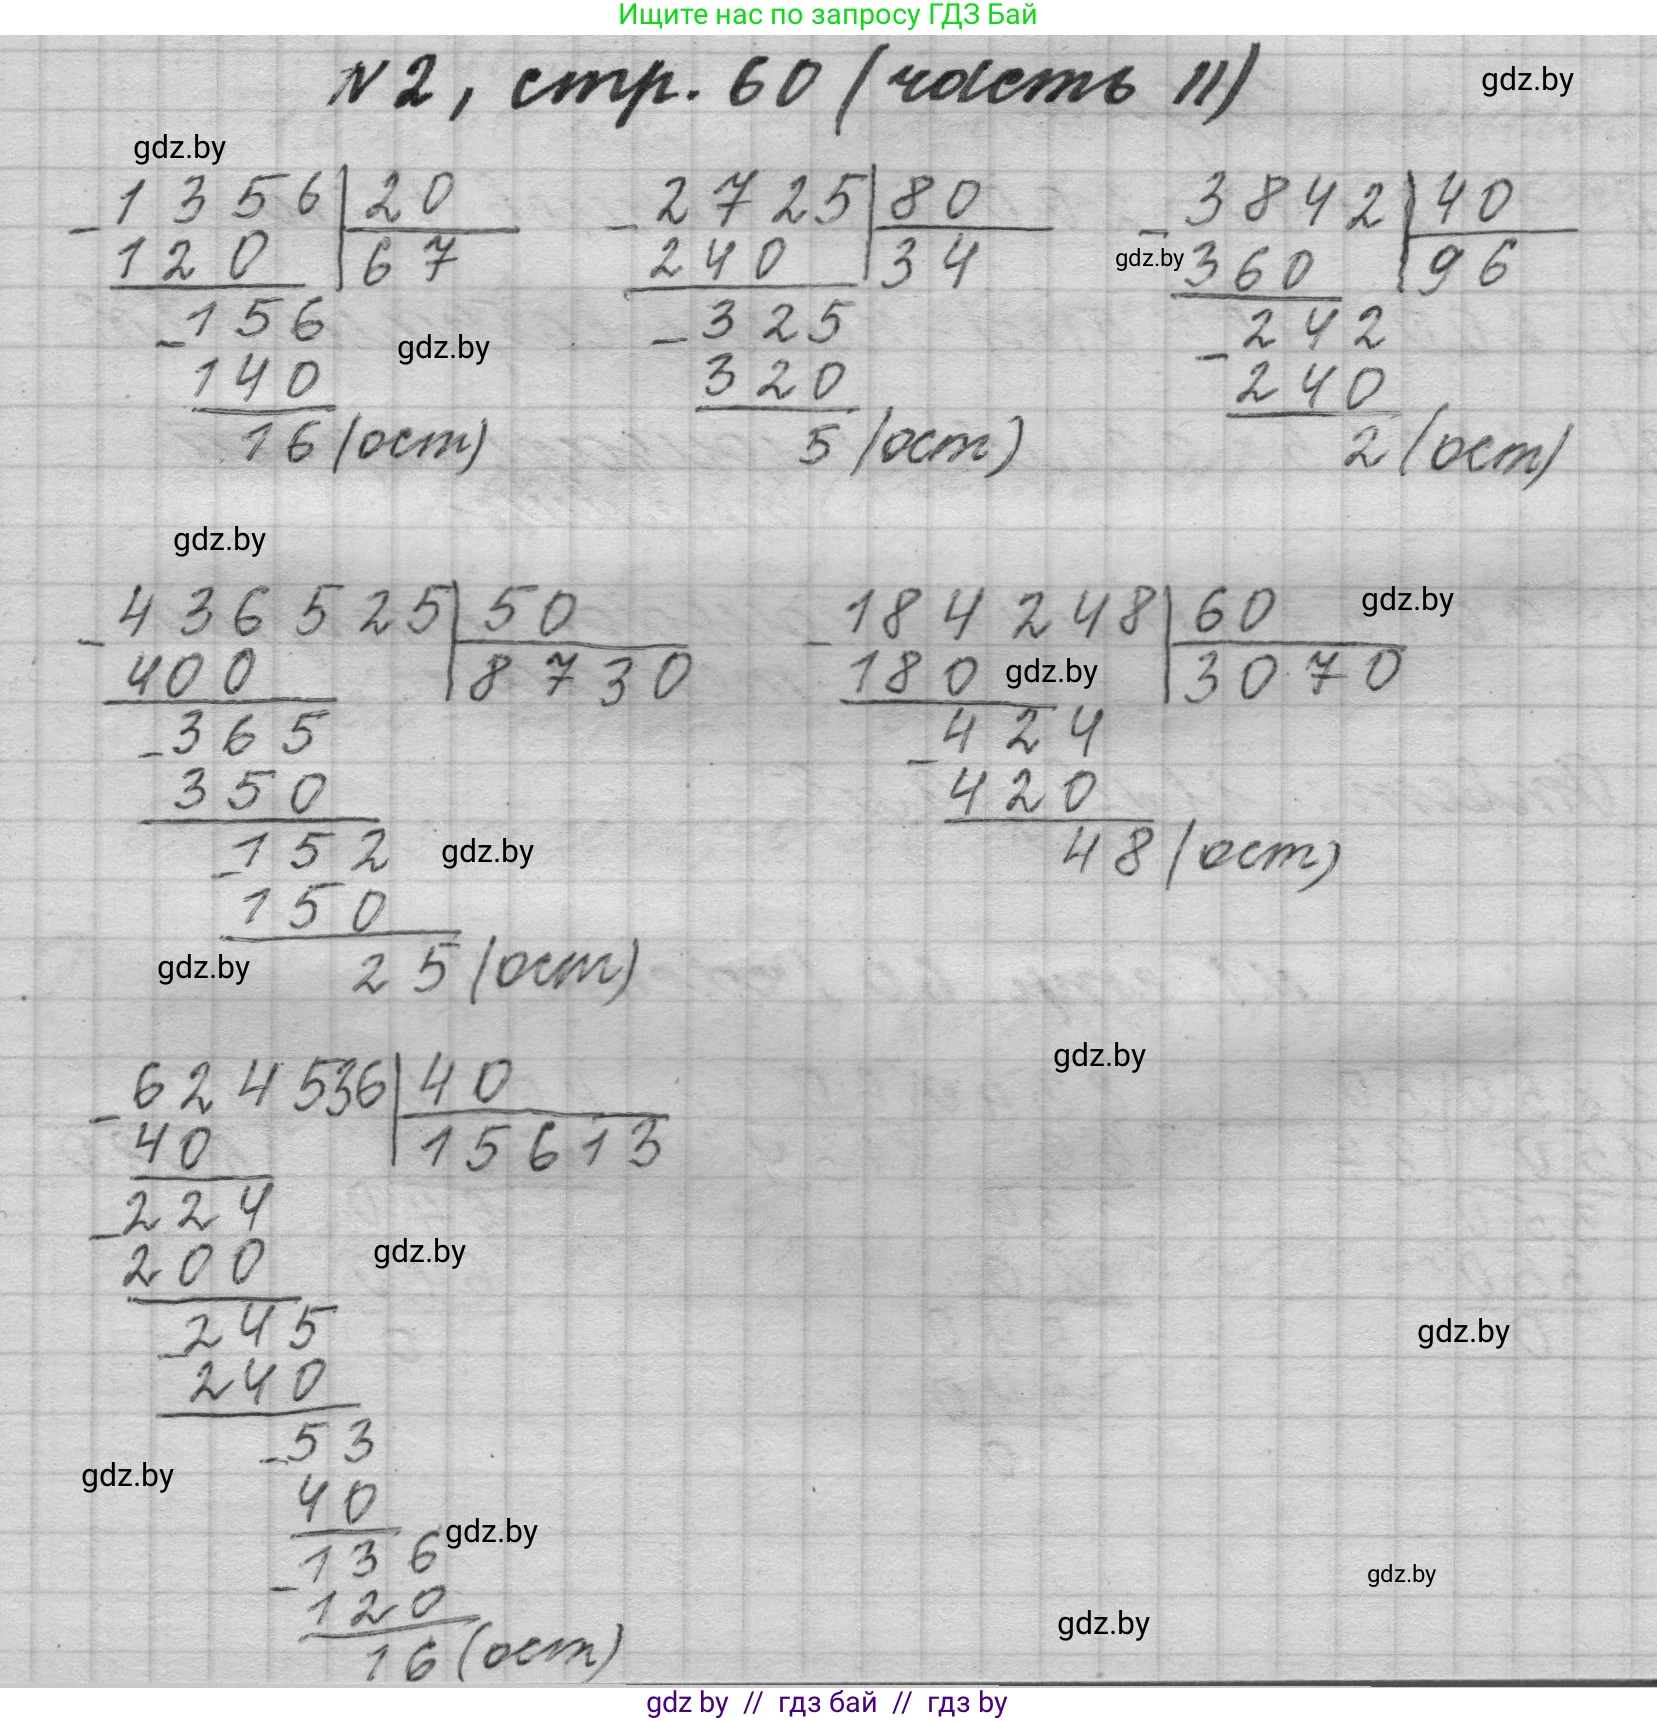 Ищите нас по запросу ГДЗ Бай
N2, стр. 60 (часть II)
gdz.by
gdz.by
- 1356 | 20
120 | 67
- 156
140
16 (ост)
gdz.by
- 2725 | 80
240 | 34
- 325
320
5 (ост)
- 3842 | 40
gdz.by
360 | 96
- 242
240
2 (ост)
gdz.by
- 436525 | 50
400 | 8730
- 365
350
- 152
150
25 (ост)
gdz.by
gdz.by
- 184248 | 60
180 | 3070
- 424
420
48 (ост)
gdz.by
gdz.by
gdz.by
- 624536 | 40
40 | 15613
- 224
200
- 245
240
- 53
40
- 136
120
16 (ост)
gdz.by
gdz.by
gdz.by
gdz.by
gdz.by
gdz.by
gdz by // гдз бай // гдз by